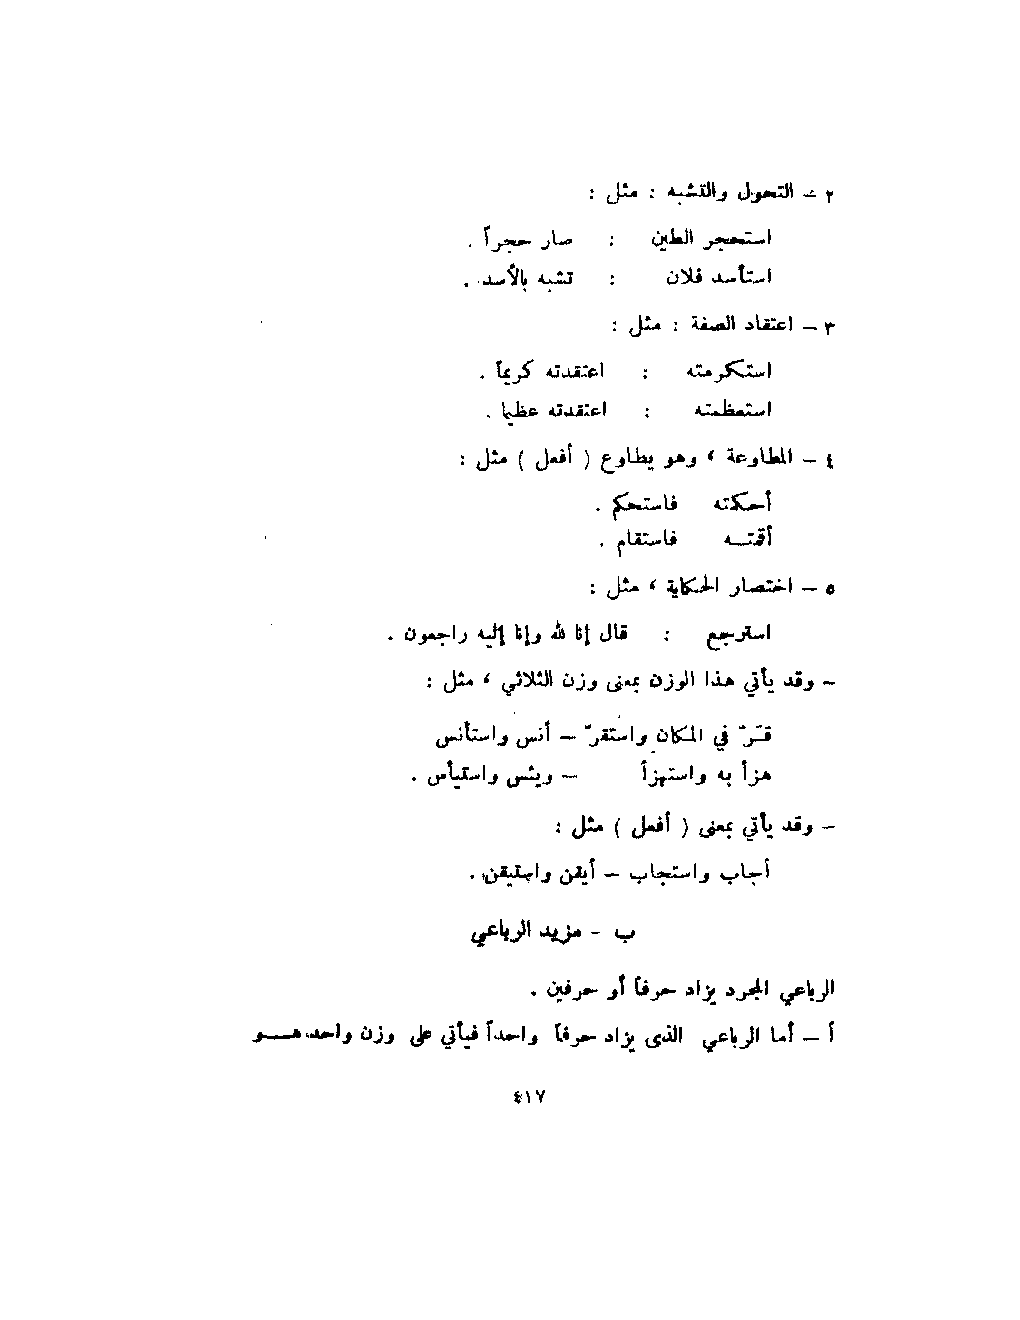 ٢ – التحول والتشبه : مثل :
استحجر الطين : صار حجراً .
استأسد فلان : تشبه بالأسد .
٣ – اعتقاد الصفة : مثل :
استكرمته : اعتقدته كريماً .
استعظمته : اعتقدته عظيما .
٤ – المطاوعة ، وهو يطاوع ( أفعل ) مثل :
أحكمته فاستحكم .
أقمتـــه فاستقام .
٥ – اختصار الحكاية ، مثل :
استرجع : قال إنا لله وإنا إليه راجعون .
– وقد يأتي هذا الوزن بمعنى وزن الثلاثي ، مثل :
قـَرّ في المكان واستقرّ – أنس واستأنس
هزأ به واستهزأ – ويئس واستيأس .
– وقد يأتي بمعنى ( أفعل ) مثل :
أجاب واستجاب – أيقن واستيقن .
ب - مزيد الرباعي
الرباعي المجرد يزاد حرفاً أو حرفين .
أ – أما الرباعي الذى يزاد حرفاً واحداً فيأتي على وزن واحد هـــو
٤١٧